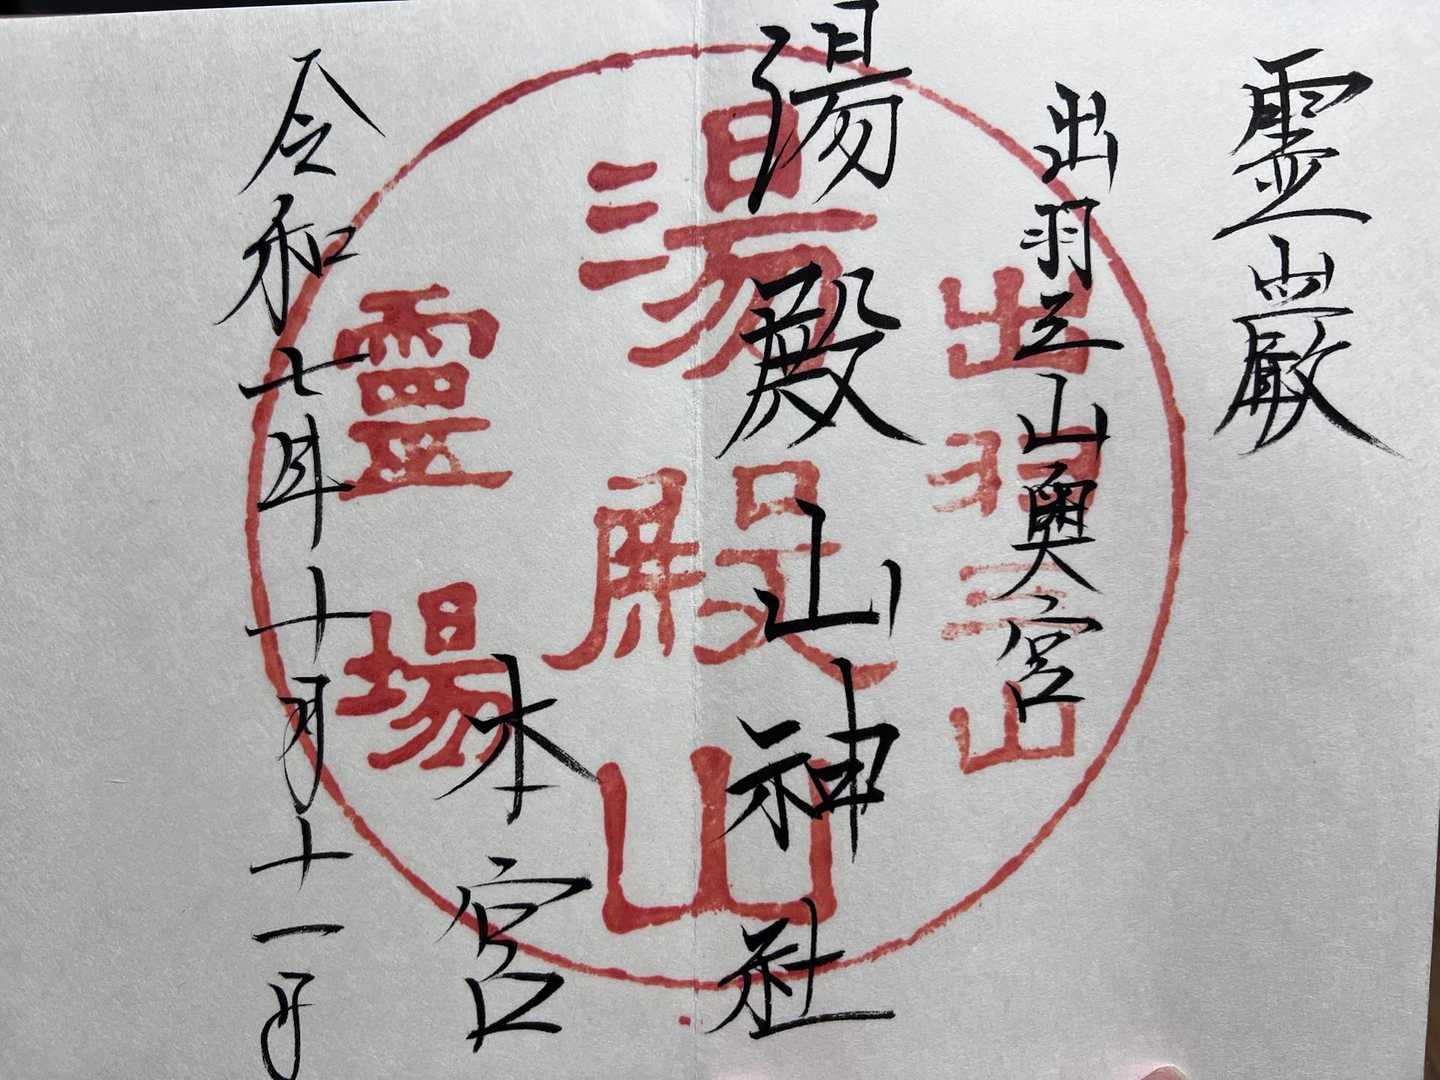 霊巌
出羽三山奥宮
湯殿山神社
本宮
令和七年十月十一日
出羽三山
湯殿山
靈場